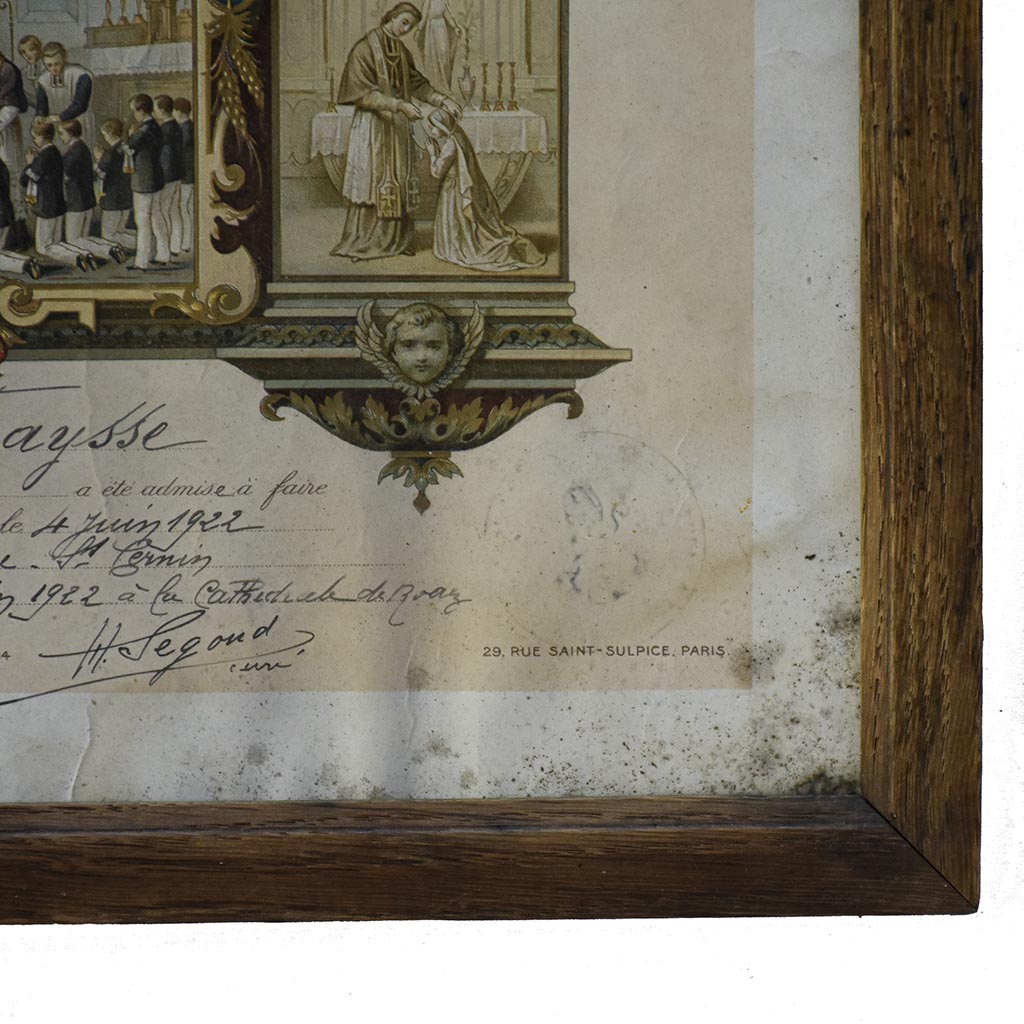 aysse
a été admise à faire
le 4 Juin 1922
e. St Cernin
1922 à la Cathédrale de
H. Segond
curé
29, RUE SAINT-SULPICE, PARIS.